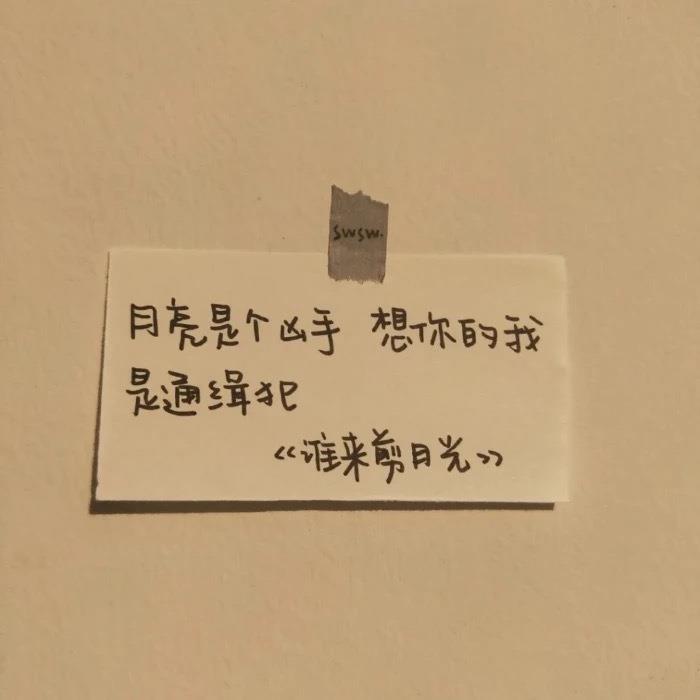 swsw.
月亮是个凶手 想你的我
是通缉犯
《谁来剪月光》